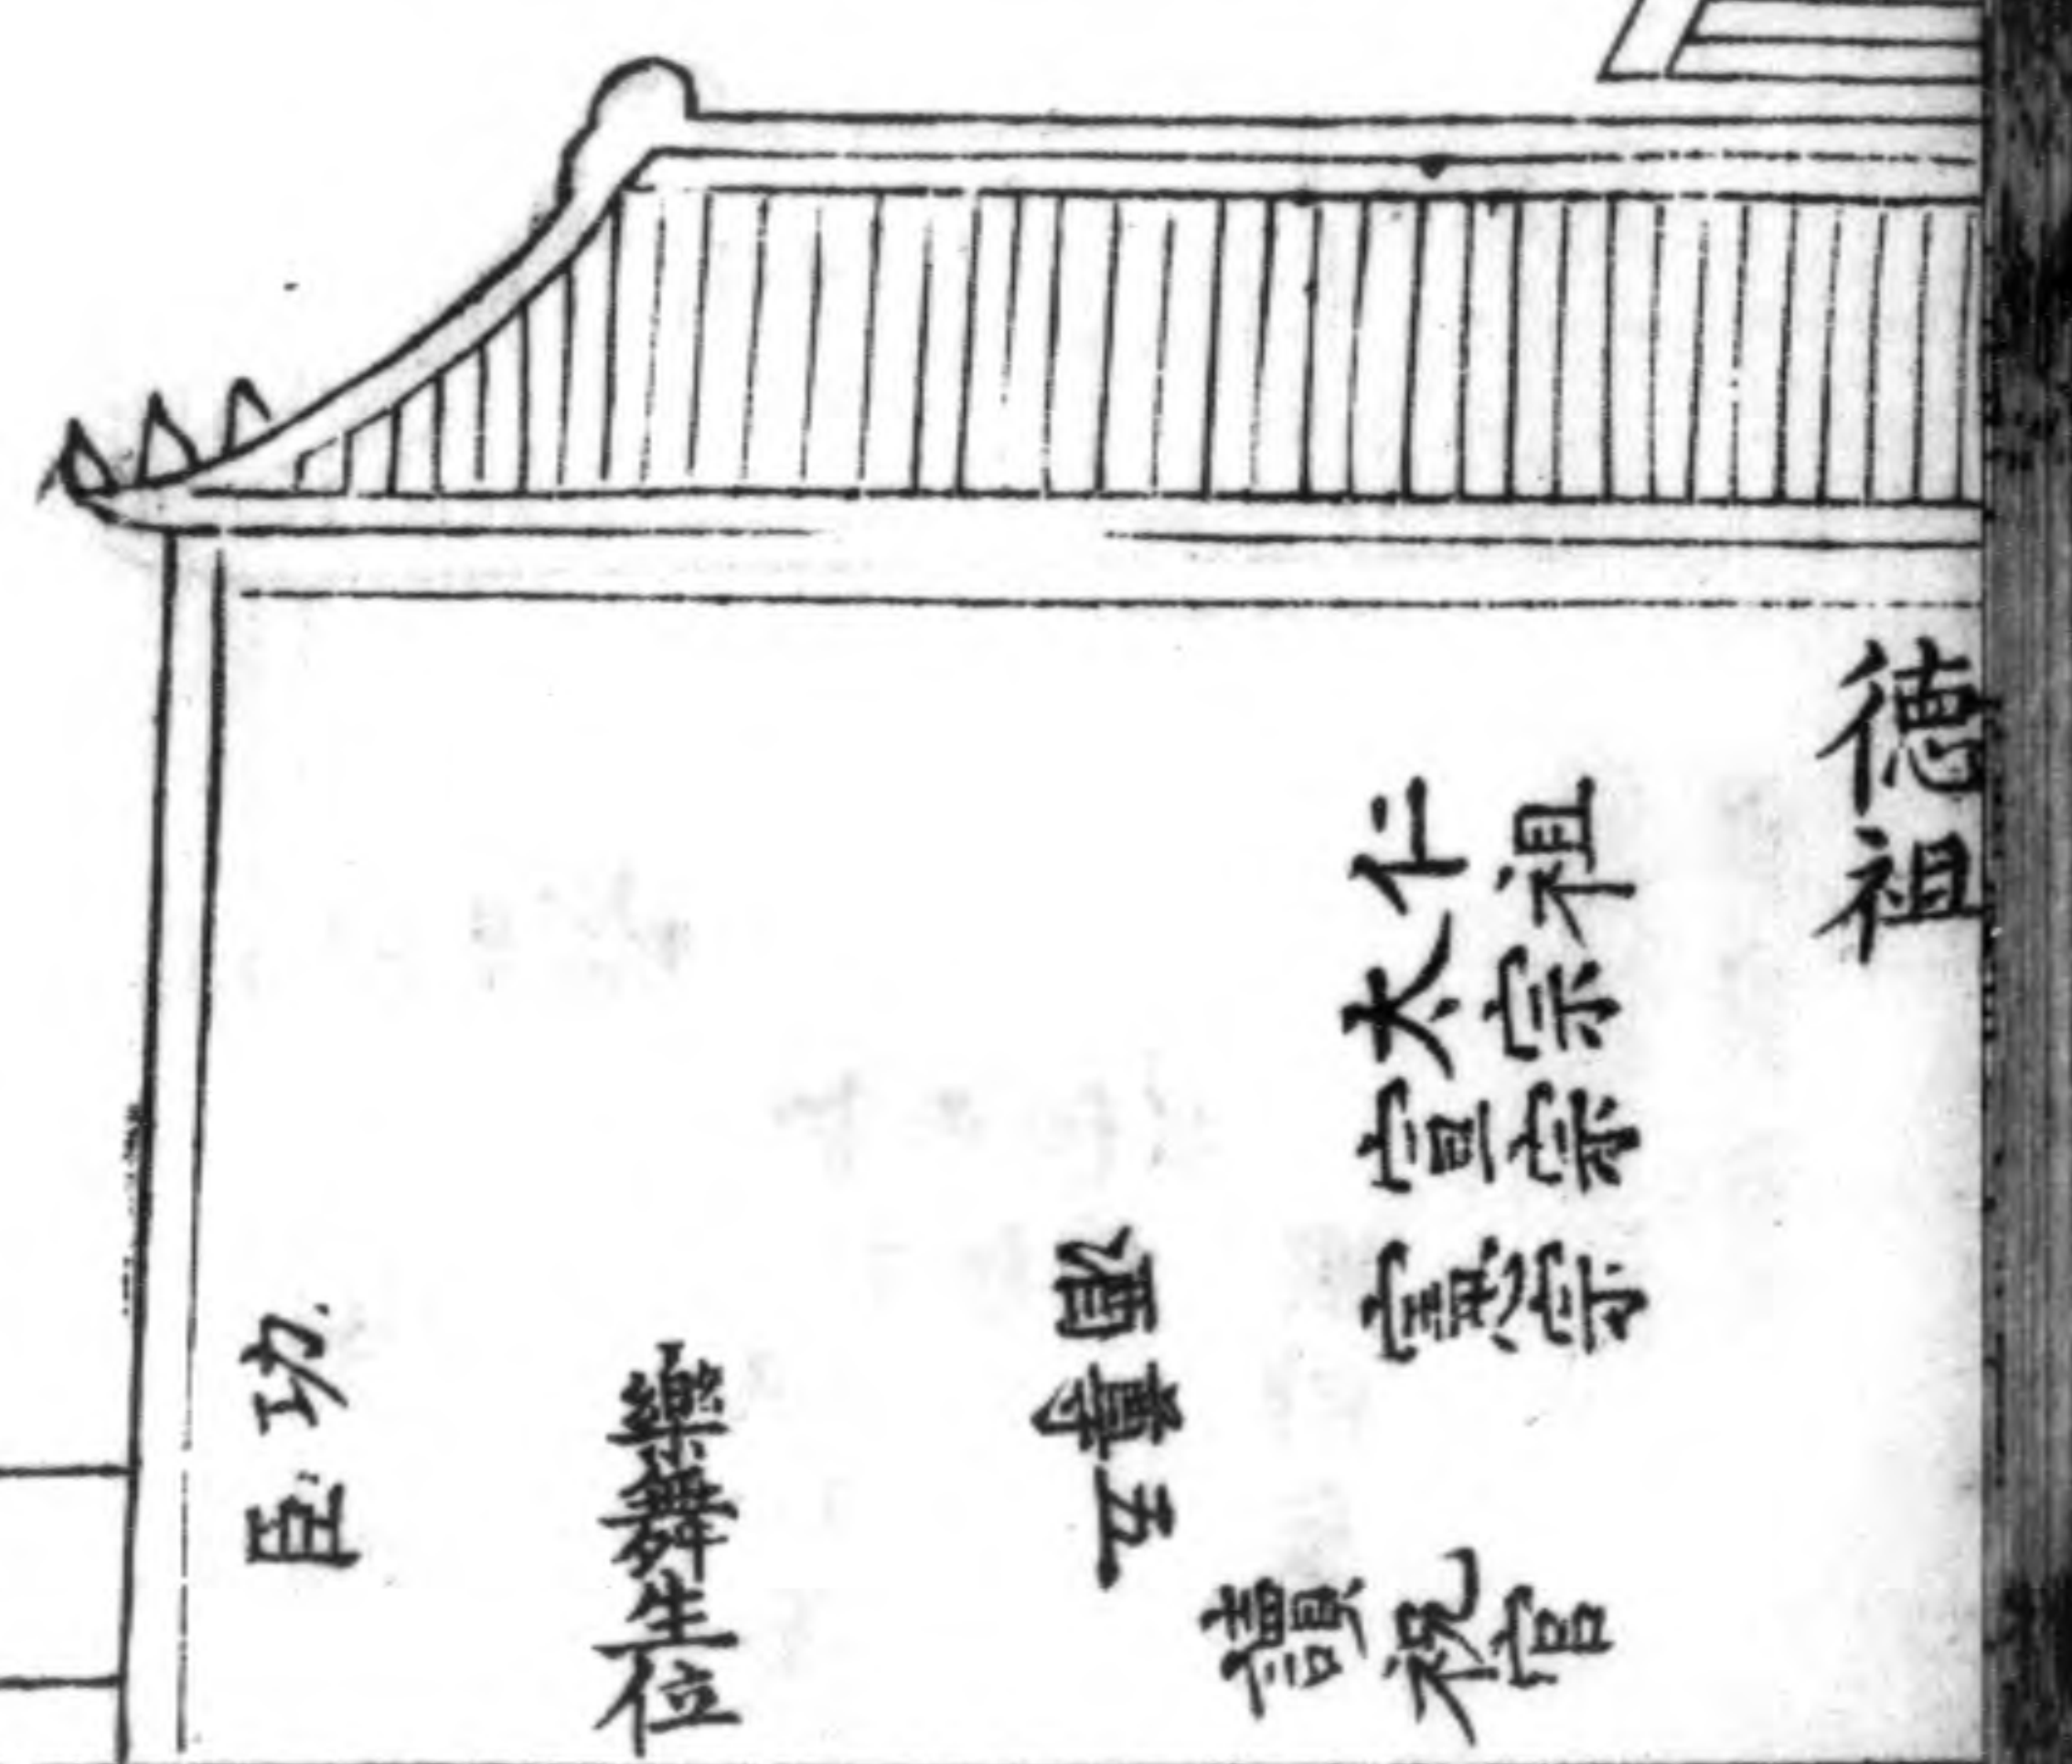 德祖
仁祖
太宗
宣宗
憲宗
讀祝官
樂舞生位
功臣